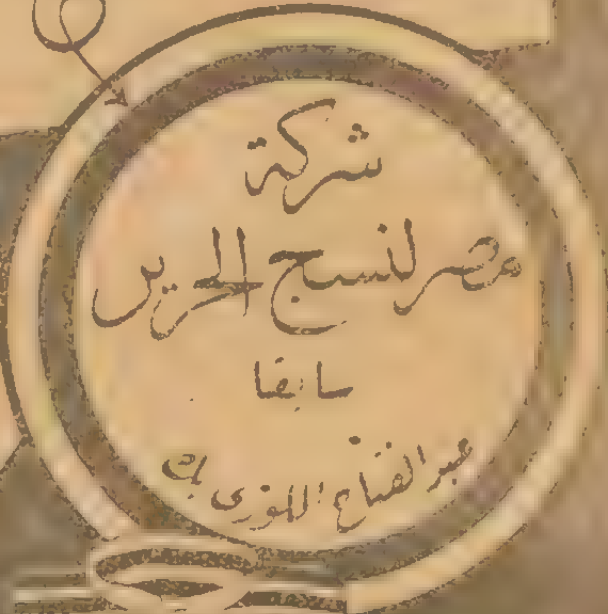 شركة
مصر لنسج الحرير
سابقا
عبد الفتاح اللوزى بك